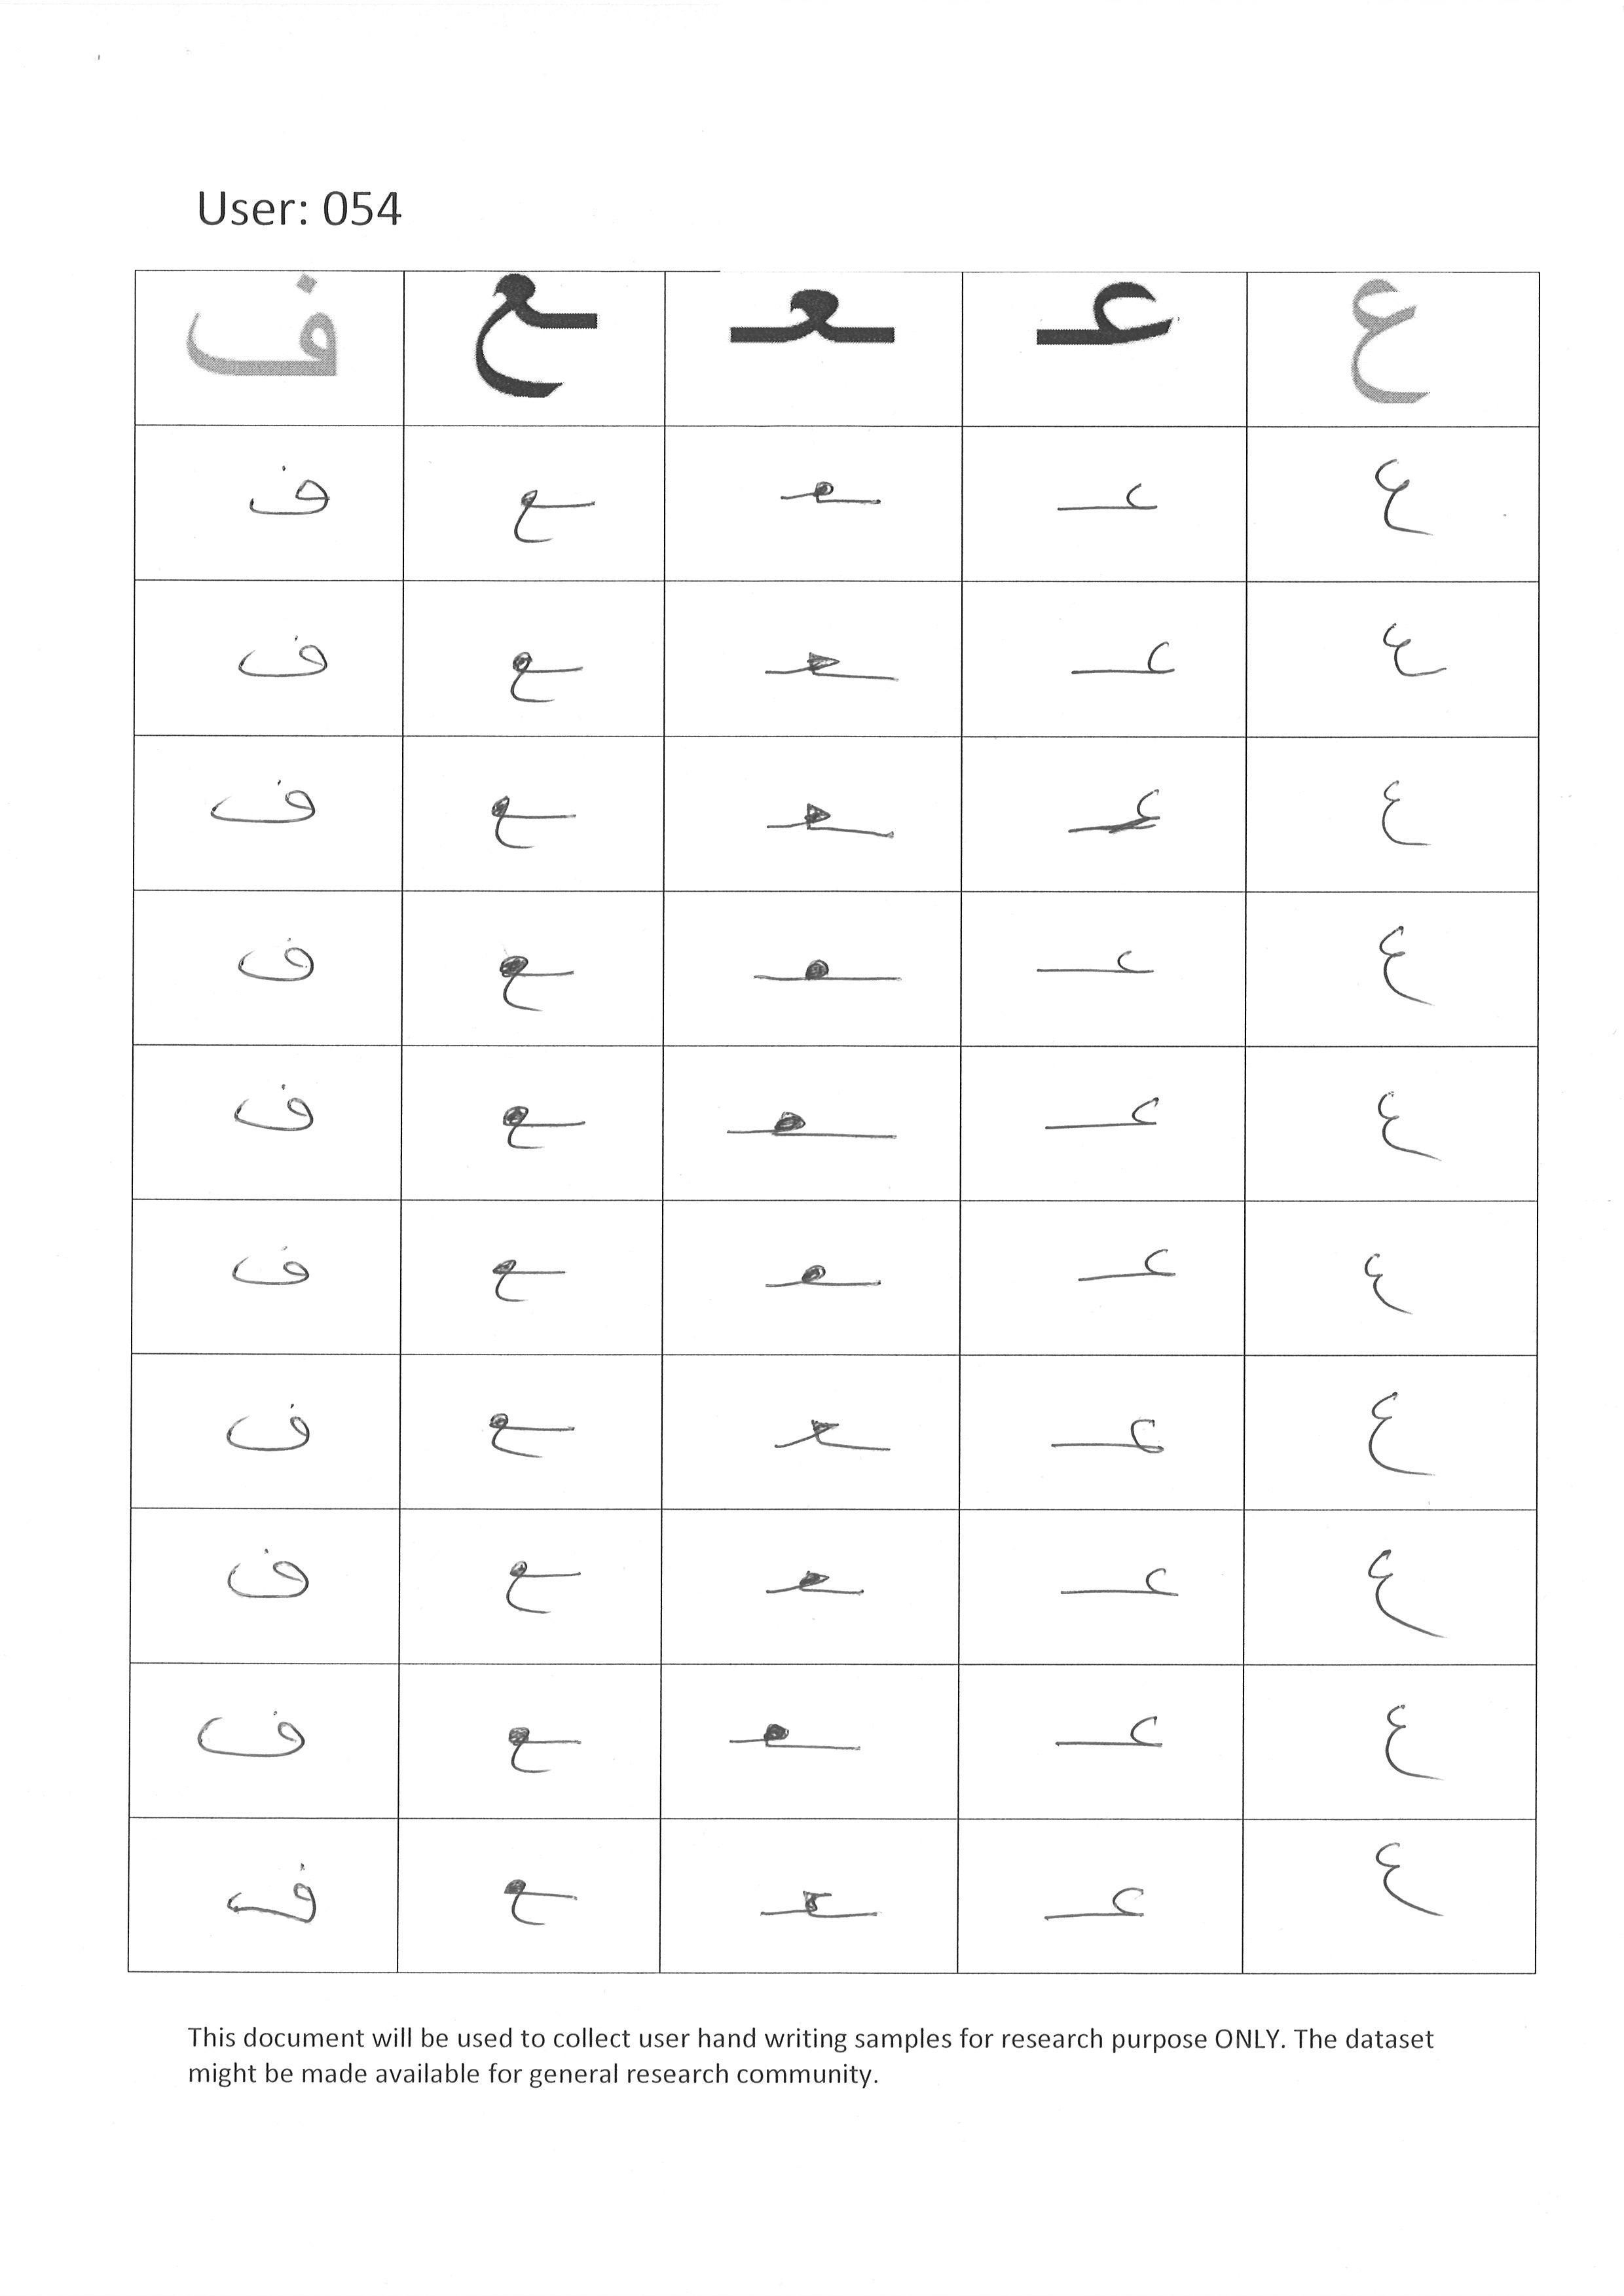 User: 054
ع عـ ـعـ ـع ف
ع عـ ـعـ ـع ف
ع عـ ـعـ ـع ف
ع عـ ـعـ ـع ف
ع عـ ـعـ ـع ف
ع عـ ـعـ ـع ف
ع عـ ـعـ ـع ف
ع عـ ـعـ ـع ف
ع عـ ـعـ ـع ف
ع عـ ـعـ ـع ف
ع عـ ـعـ ـع ف
This document will be used to collect user hand writing samples for research purpose ONLY. The dataset
might be made available for general research community.